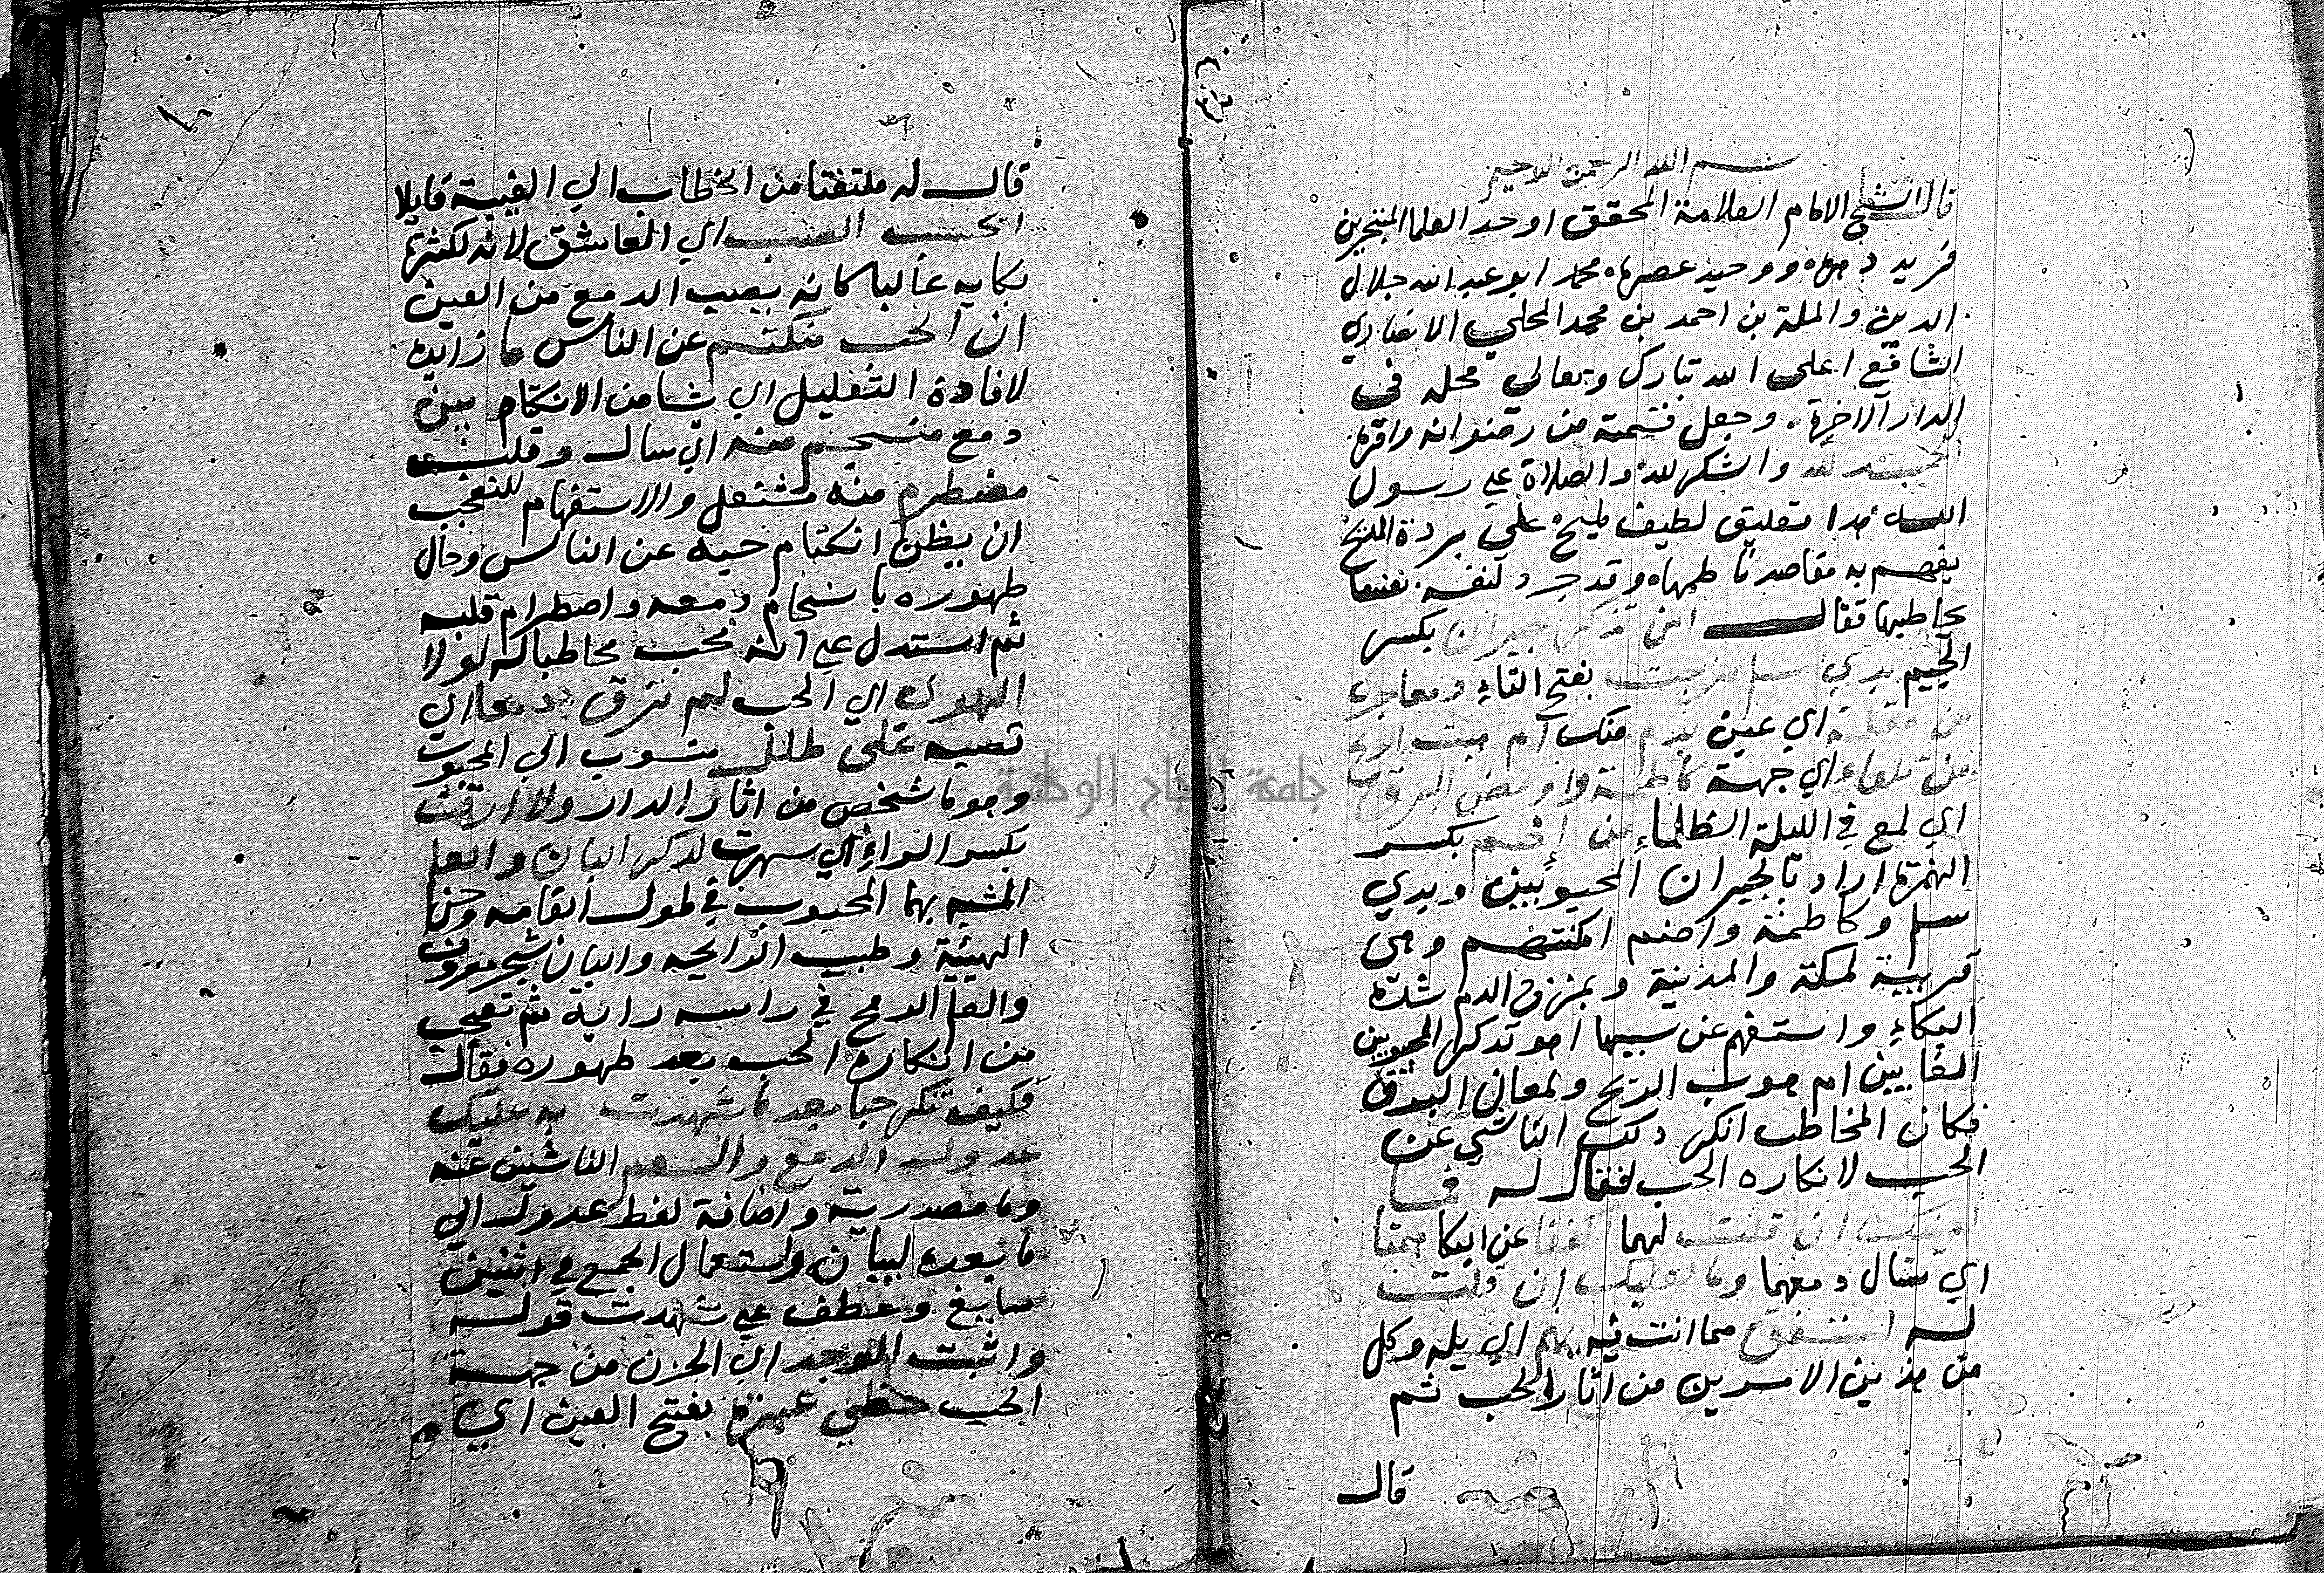 بسم الله الرحمن الرحيم
قال الشيخ الامام العلامة المحقق اوحد العلما المتبحرين
فريد دهره ووحيد عصره محمد ابو عبد الله جلال
الدين والملة بن احمد بن محمد المحلي الانصاري
الشافعي اعلى الله تبارك وتعالى محله في
الدار الاخرة وجعل قسمة من رضوانه وافرة
الحمد لله والشكر لله والصلاة علي رسول
الله هذا تعليق لطيف علي بردة المديح
يفهم به مقاصد ناظمها وقد جرد لنفسه نفسا
يخاطبها فقال امن تذكر جيران بكسر
الجيم بذي سلم مزجت بفتح التاء دمعا جري
من مقلة اي عين بدم منك ام هبت الريح
من تلقاء اي جهة كاظمة واومض البرق
اي لمع في الليلة الظلماء من إضم بكسر
الهمزة اراد بالجيران المحبوبين وبذي
سلم وكاظمة واضم امكنتهم وهي
قريبة لمكة والمدينة وبمزج الدم شدة
البكاء واستفهم عن سببها اهو تذكر المحبوبين
الغايبين ام هبوب الريح ولمعان البرق
فكان المخاطب انكر ذلك الناشي عن
الحب لانكاره الحب فقال له فما
لعينيك ان قلت لهما اكففا عن البكا همتا
اي سال دمعهما وما لقلبك ان قلت
له استفق مما انت فيه يهم اي يله وكل
من هذين الامرين من اثار الحب ثم
قال
قال له ملتفتا من الخطاب الي الغيبة قايلا
ايحسب الصب اي العاشق لانه لكثرة
بكايه غالبا كانه يصب الدمع من العين
ان الحب منكتم عن الناس ما زايدة
لافادة التقليل اي شيا من الانكتام بين
دمع منسجم منه اي سال وقلب
مضطرم منه مشتعل والاستفهام للتعجب
ان يظن انكتام حبه عن الناس وحال
ظهوره بانسجام دمعه واضطرام قلبه
ثم استدل علي انه محب مخاطبا له لولا
الهوي اي الحب لم ترق دمعا اي
تصبه على طلل منسوب الي المحبوب
وهو ما شخص من اثار الدار ولا ارقت
بكسر الراء اي سهرت لذكر البان والعلم
المشبه بهما المحبوب في طول القامة وحسن
الهيئة وطيب الرايحه والبان شجر معروف
والعلم الرمح في راسه راية ثم تعجب
من انكاره الحب بعد ظهوره فقال
فكيف تنكر حبا بعد ما شهدت به عليك
عدول الدمع والسقم الناشيين عنه
وما مصدرية واضافة لفظ عدول الي
ما بعده لبيان واستعمال الجمع في اثنين
سايغ وعطف علي شهدت قوله
واثبت الوجد اي الحزن من جهة
الحب خطي عبرة بفتح العين اي
جامعة النجاح الوطنية